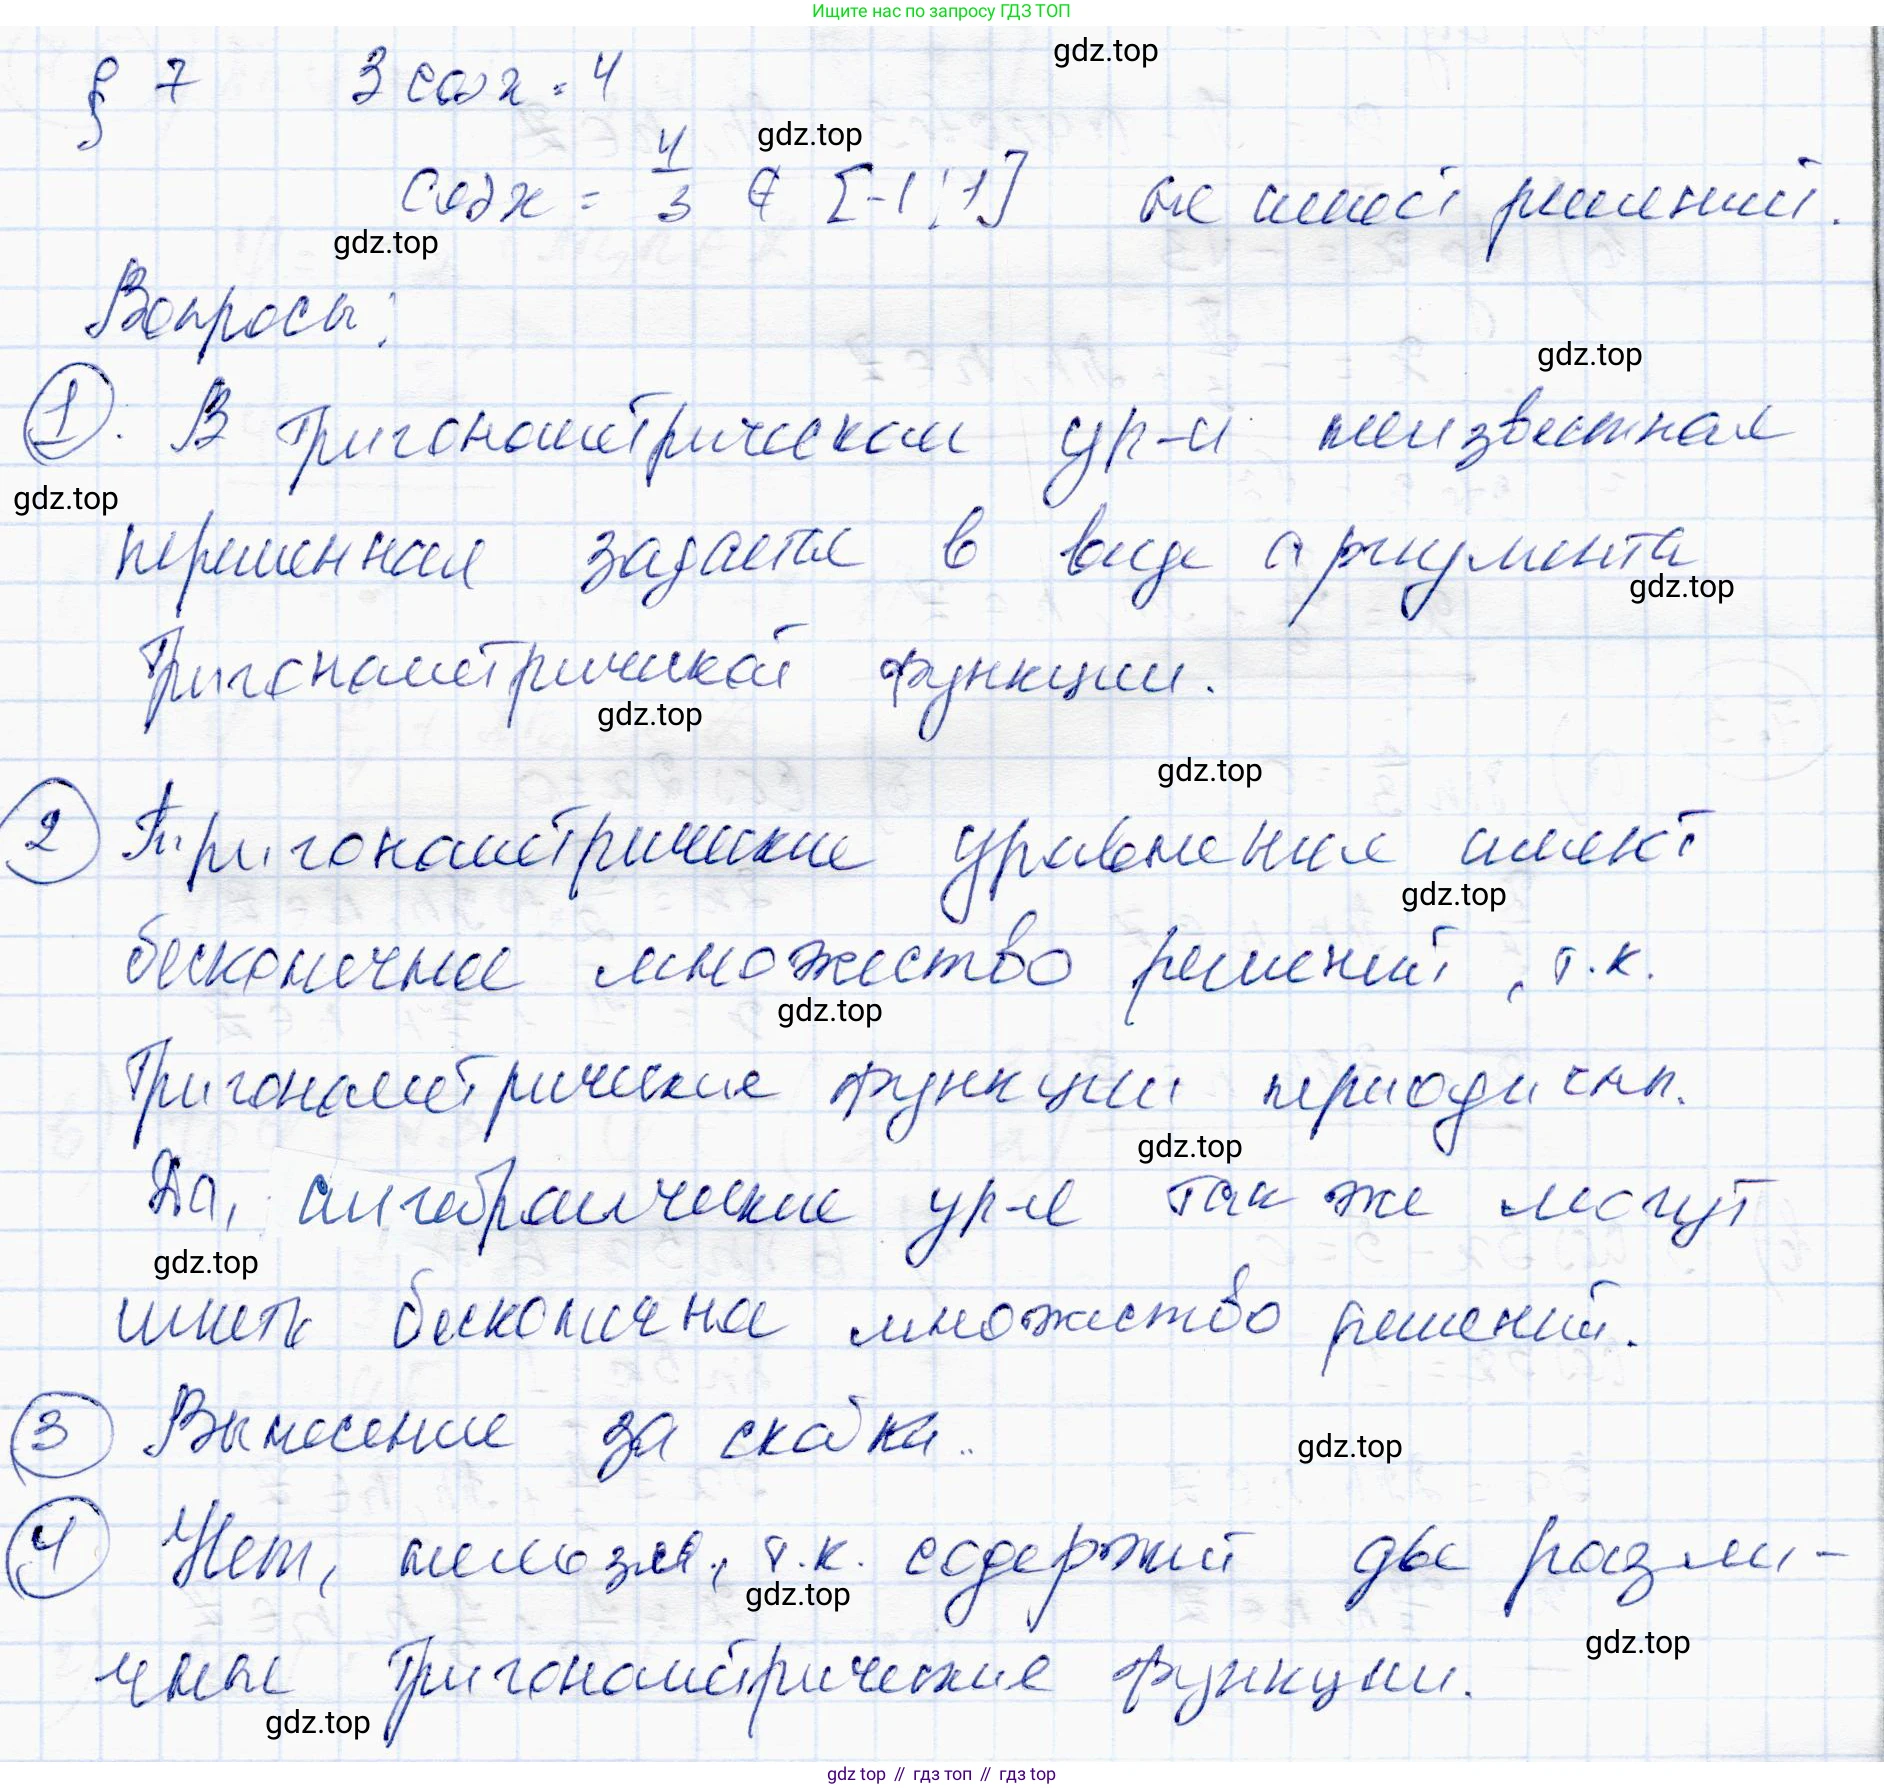 Ищите нас по запросу ГДЗ ТОП
gdz.top
§ 7 3 cos x = 4
gdz.top
cos x = 4/3 ∉ [-1; 1] не имеет решений.
gdz.top
Вопросы:
gdz.top
1. В тригонометрическом ур-и неизвестная
gdz.top
переменная задается в виде аргумента
gdz.top
тригонометрической функции.
gdz.top
gdz.top
2 Тригонометрические уравнения имеют
gdz.top
бесконечное множество решений, т.к.
gdz.top
тригонометрические функции периодичны.
gdz.top
Да, алгебраические ур-я так же могут
gdz.top
иметь бесконечное множество решений.
3 Вынесение за скобки..
gdz.top
4 Нет, нельзя, т.к. содержит две разли-
gdz.top
gdz.top
чные тригонометрические функции.
gdz.top
gdz top // гдз топ // гдз top